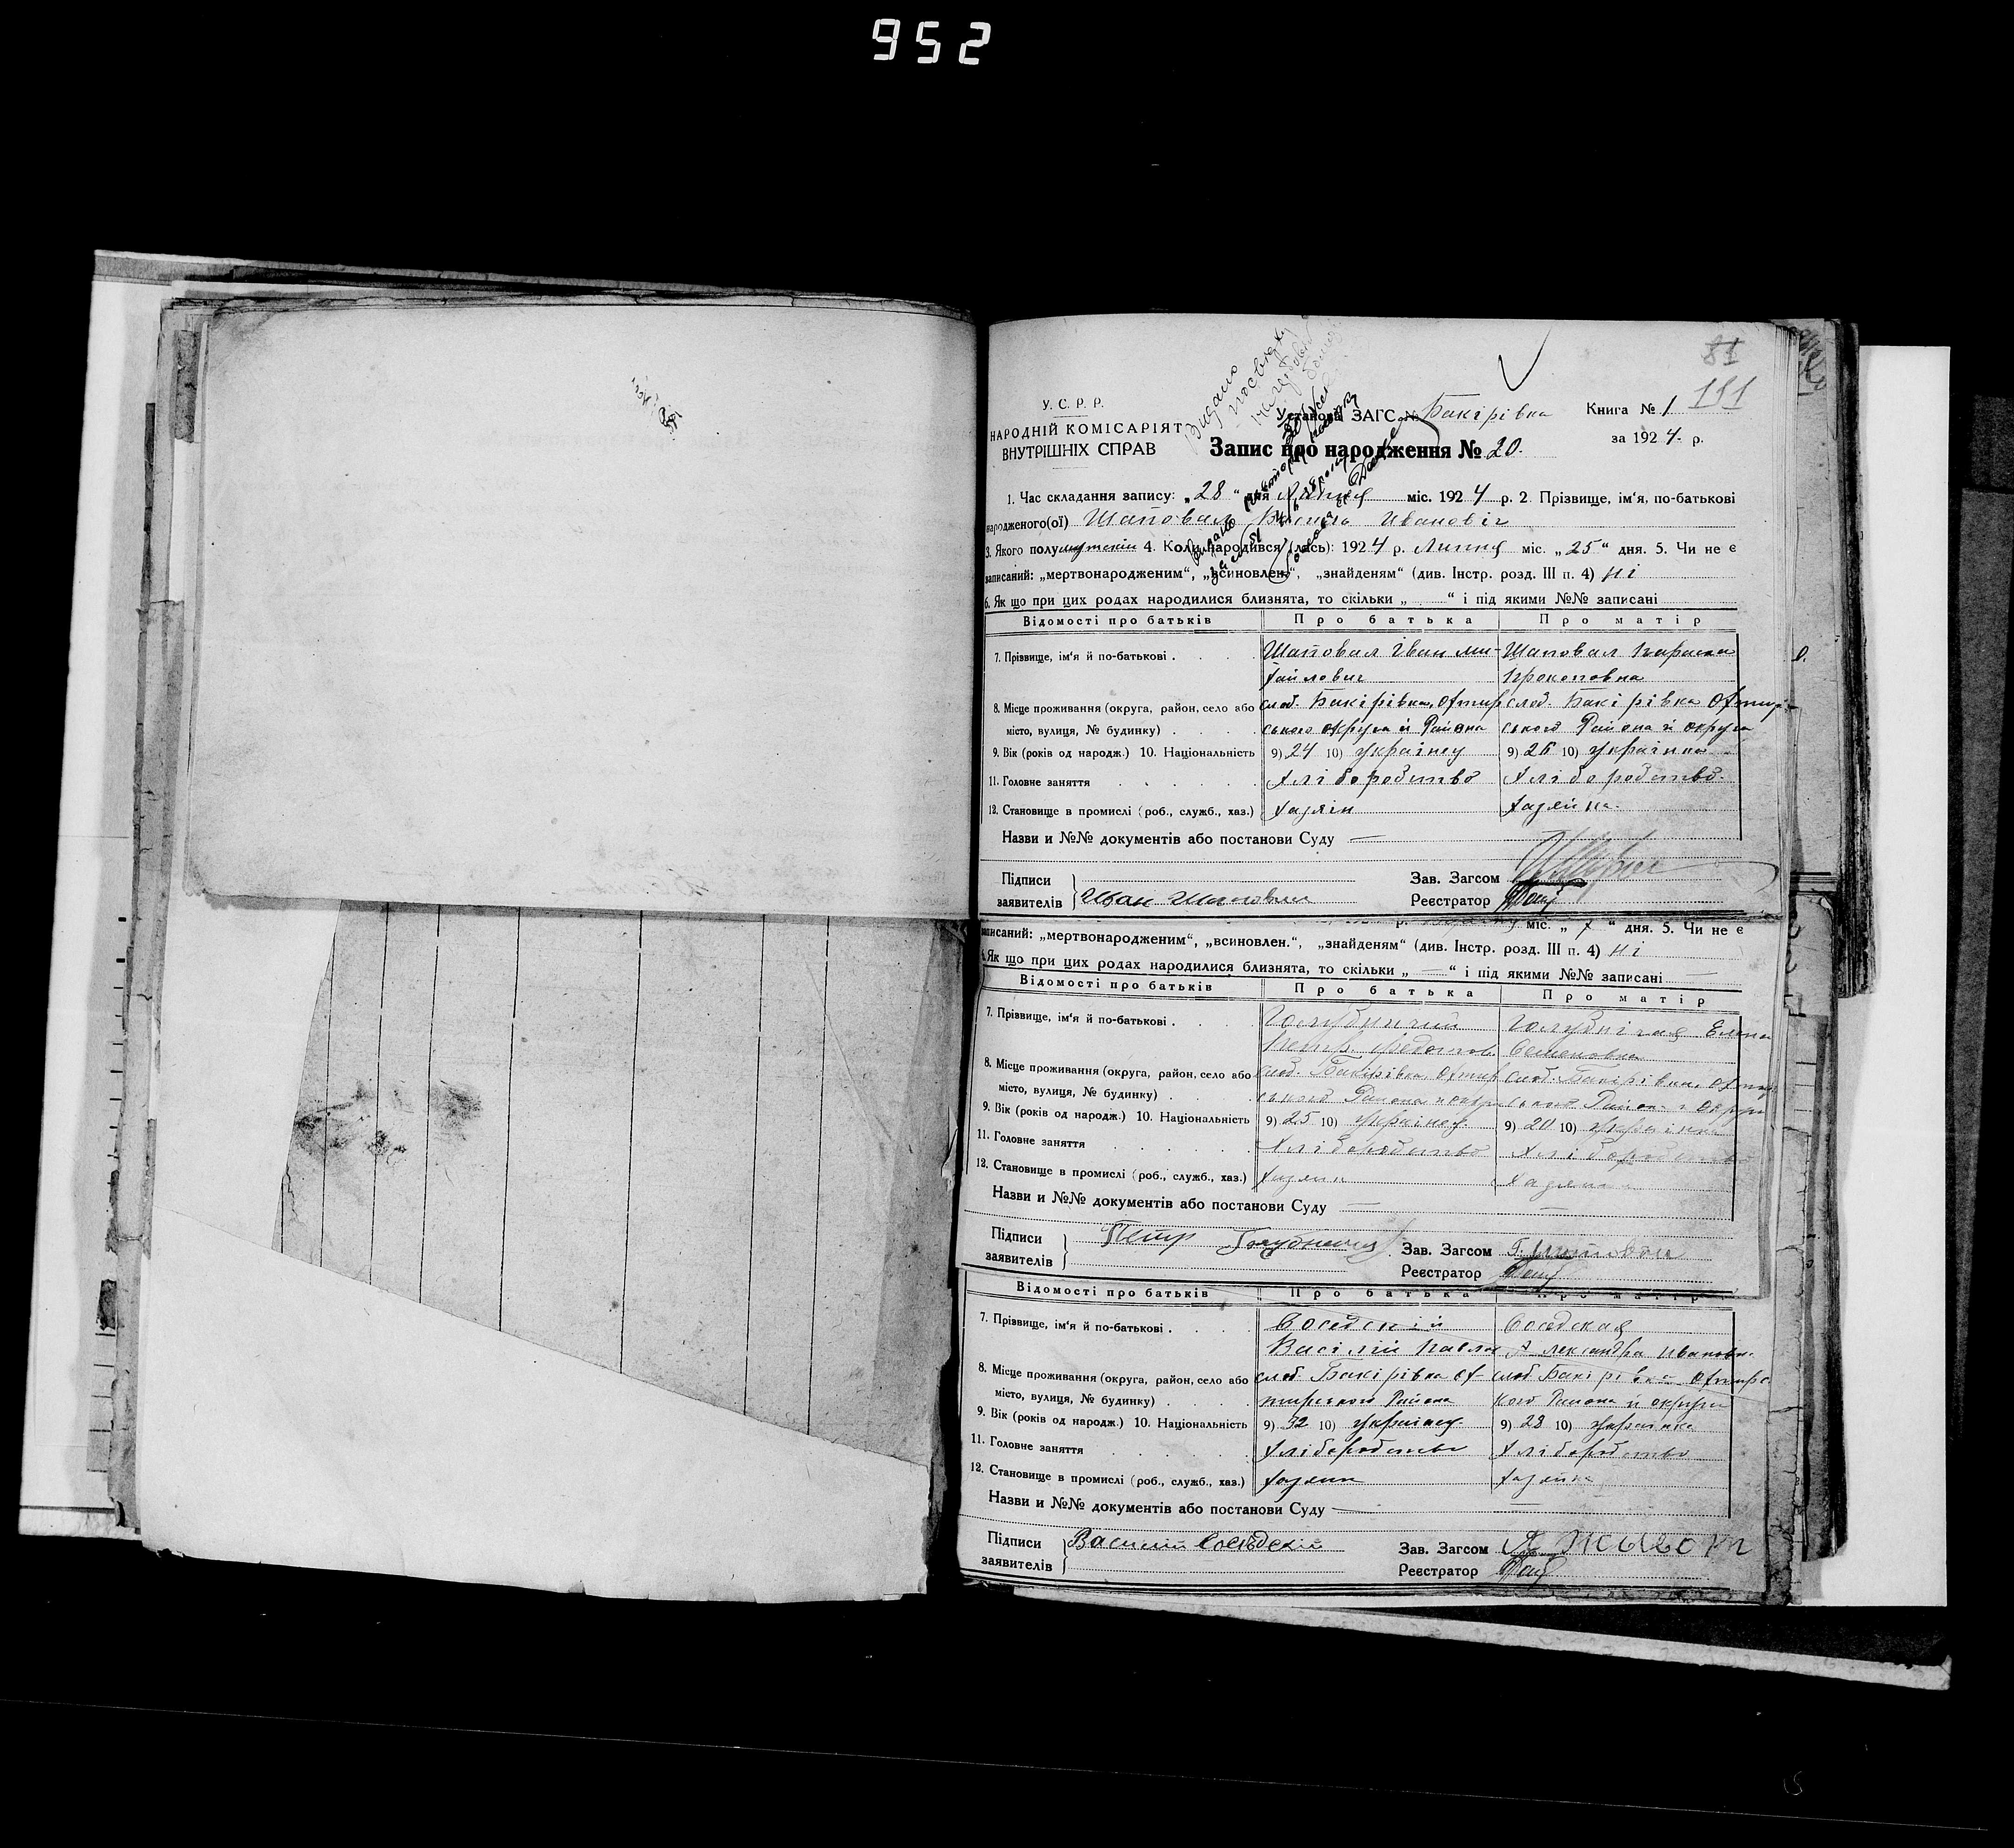 952
81
111
У. С. Р. Р.
НАРОДНІЙ КОМІСАРІЯТ
ВНУТРІШНІХ СПРАВ
Видано
Установа ЗАГС № Бакірівка
Книга № 1
за 1924 р.
Запис про народження № 20.
1. Час складання запису: „28“ дня міс. 1924 р. 2 Прізвище, ім‘я, по-батькові
народженого(ої) Шаповал Иванович
3. Якого полу 4. Коли народився (лась): 1924 р. Липня міс. „25“ дня. 5. Чи не є
записаний: „мертвонародженим“, „всиновлен.“, „знайденям“ (див. Інстр. розд. III п. 4) ні
6. Як що при цих родах народилися близнята, то скільки „ “ і під якими №№ записані
Відомості про батьків Про батька Про матір
7. Прізвище, ім‘я й по-батькові . Шаповал Іван Ми- Шаповал Параска
хайлович Прокоповна
8. Місце проживання (округа, район, село або слоб. Бакірівка, Охтир слоб. Бакірівка Охтир-
місто, вулиця, № будинку) . ського округа й Района ського Района й округа
9. Вік (років од народж.) 10. Національність 9) 24 10) Українец 9) 26 10) Українка
11. Головне заняття Хліборобство Хліборобство.
12. Становище в промислі (роб., служб., хаз.) Хазяін Хазяйка.
Назви и №№ документів або постанови Суду —
Підписи
заявителів Иван Шаповал
Зав. Загсом
Реєстратор
р. міс. „ “ дня. 5. Чи не є
записаний: „мертвонародженим“, „всиновлен.“, „знайденям“ (див. Інстр. розд. III п. 4) ні
6. Як що при цих родах народилися близнята, то скільки „ — “ і під якими №№ записані —
Відомості про батьків Про батька Про матір
7. Прізвище, ім‘я й по-батькові . Голубничий Голубничая Елена
Петр Федотов Семеновна
8. Місце проживання (округа, район, село або слоб. Бакірівка, Охтир слоб. Бакірівка, Охтир
місто, вулиця, № будинку) . ського Района ського Района
9. Вік (років од народж.) 10. Національність 9) 25 10) Українец 9) 20 10) Українка
11. Головне заняття Хліборобство Хліборобство
12. Становище в промислі (роб., служб., хаз.) Хазяин
Назви и №№ документів або постанови Суду — —
Підписи
заявителів Петр Голубничий
Зав. Загсом
Реєстратор
Відомості про батьків Про батька Про матір
7. Прізвище, ім‘я й по-батькові . Соседскій Соседская
Васілій Павлов Александра Ивановна
8. Місце проживання (округа, район, село або слоб. Бакірівка Ох- слоб. Бакірівка Охтирс
місто, вулиця, № будинку) . тирського Района кого Района й округи
9. Вік (років од народж.) 10. Національність 9) 32 10) Українец 9) 28 10) Українка
11. Головне заняття Хліборобство Хліборобство
12. Становище в промислі (роб., служб., хаз.) Хазяин Хазяйка
Назви и №№ документів або постанови Суду — —
Підписи
заявителів Василий Соседский
Зав. Загсом
Реєстратор